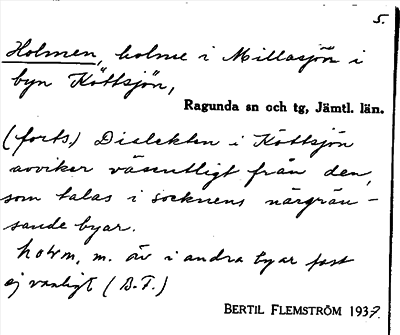 5.
Holmen, holme i Millasjön i
byn Köttsjön,
Ragunda sn och tg, Jämtl. län.
(forts.) Dialekten i Köttsjön
avviker väsentligt från den,
som talas i socknens närgrän-
sande byar.
m. äv i andra byar fast
ej vanligt (B.F.)
BERTIL FLEMSTRÖM 1937.